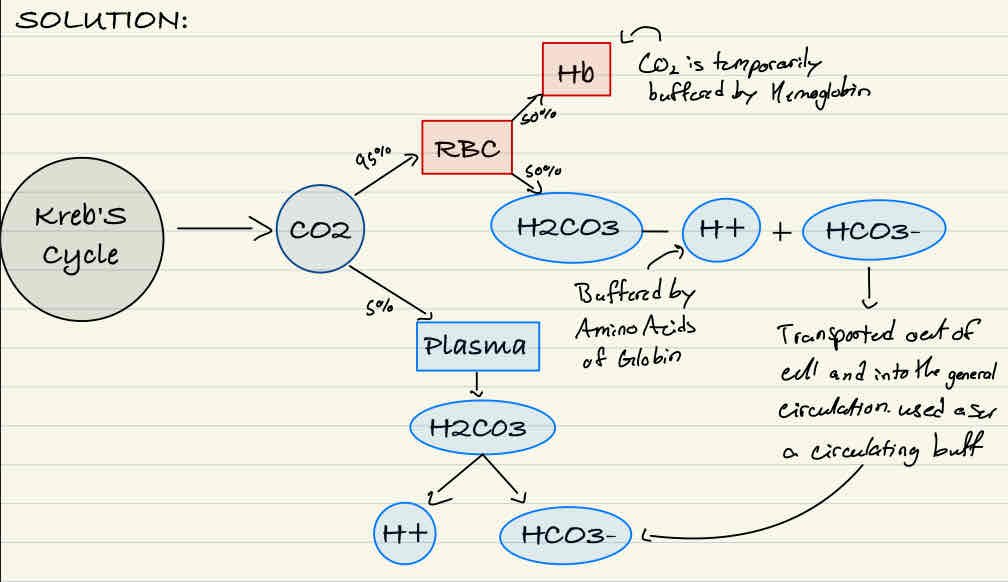 SOLUTION:
Hb
CO2 is temporarily
buffered by Hemoglobin
50%
RBC
95%
50%
Kreb'S
Cycle
CO2
H2CO3
H+
+
HCO3-
5%
Buffered by
Amino Acids
of Globin
Plasma
Transported out of
cell and into the general
circulation. used as
a circulating buff
H2CO3
H+
HCO3-